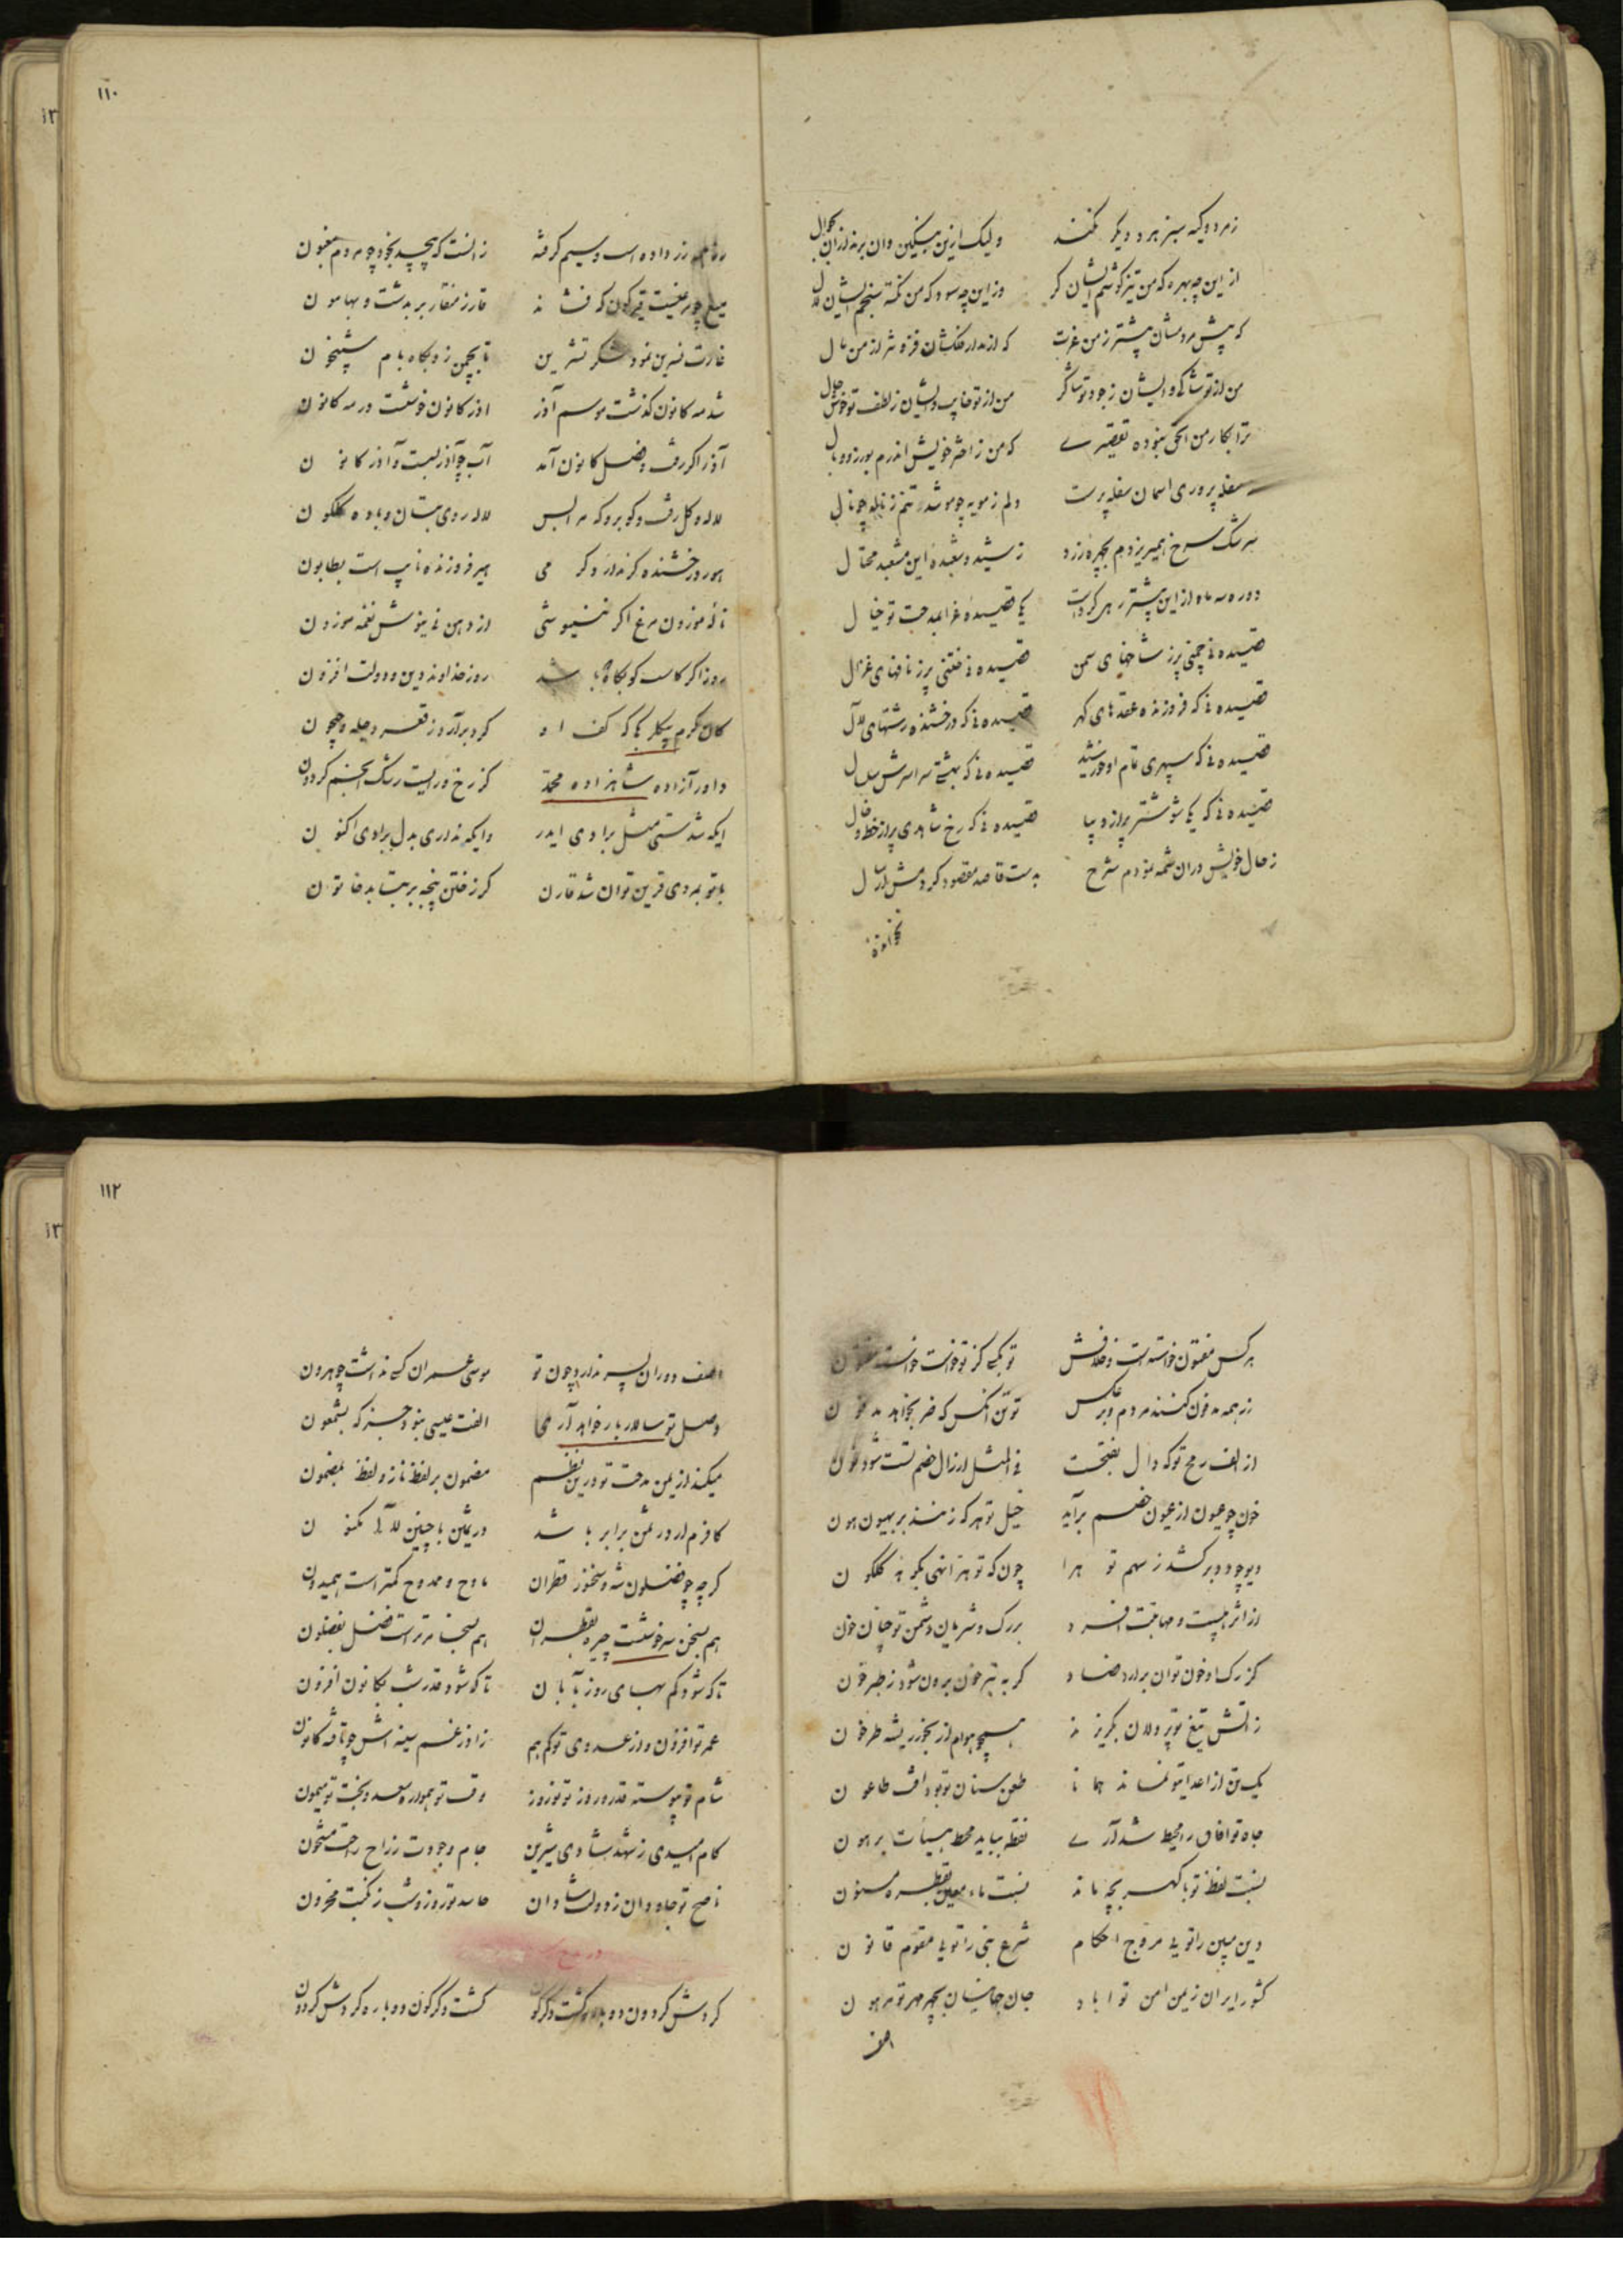 زمرد و گیه سبز هر دو یکرنگند ولیک ازین بنگین دان برند ازان بجوال
از این چه بهره که من تیز گوشم ایشان کر وزاین چه سود که من نکته سنجم ایشان لال
که پیش مردمشان بیشتر ز من عزت که از مدار فلکشان فزون‌تر از من مال
من از تو شاکی و ایشان ز جود تو شاکر من از تو خایب و ایشان ز لطف تو خوشحال
ترا بکار من اکنون نبوده تقصیری که من ز اختر خویش اندرم بوزر و وبال
سفله پروری اسمان سفله پرست دلم ز مویه چو مو شد تنم ز ناله چو نال
سرشک سرخ همیریزدم بچهره زرد ز شید و شعبده این مشعبد محتال
دو ره سه ماه از این پیشتر رهی کرد است یکی قصیده غرا بمدحت تو خیال
قصیده نه چمنی پر ز شاخهای سمن قصیده نه ختنی پر ز نافهای غزال
قصیده نه که فروزنده عقدهای گهر قصیده نه که درخشنده رشتهای لآل
قصیده نه که سپهری تمام او خورشید قصیده نه که بهشتی سراسرش سلسال
قصیده نه که یکی شوشتر پر از دیبا قصیده نه که رخ شاهدی پر از خط و خال
ز حال خویش دران شمه نمودم شرح بدست قاصد مقصود کردمش ارسال
۱۱۰
زر داده است و سیم گرفته زانست که پیچد بخود چو مردم مغبون
میغ چو عفریت قیرگون کف فشاند قار ز منقار بر بدشت و بهامون
غارت نسرین نمود لشکر تشرین تا بچمن زد بگاه بام شبیخون
شد مه کانون گذشت موسم آذر اذر کانون خوشست در مه کانون
آذر اگر رفت و فصل کانون آمد آب چو آذر بست و آذر کانون
لاله و گل رفت و گو برو که مرا بس لاله روی بتان و باده گلگون
هور درخشنده گر ندارد گرمی مهر فروزنده ناپ است بطابون
ناله موزون مرغ اگر نینیوشی از دهن نی نیوش نغمه موزون
روز اگر کاست گو بکاه باشد روز خداوند دین و دولت افزون
کان کرم بیگلر بیکی که کف او گرد برآرد ز قعر دجله و جیحون
داور آزاده شاهزاده محمد کز رخ و رایست رشک انجم گردون
ایکه شدستی مثل برادی ایدر وایکه نداری بدل برادی اکنون
با تو بمردی قرین توان شد قارن گر ز ختن پنجه بر بتابد خاتون
هر کس مفتون خواسته است و خلافش تو بکسی کز تو خواست خواسته مفتون
زر همه مدفون کنند مردم و بر عکس توئی آنکس که ضر بخواهد مدفون
از الف رمح تو که دال بفتحست فی المثل ار زال خصم تست شود نون
خون چو عیون از عیون خصم برآید خیل تو هر گه زنند بر بهیون هون
دیو چو دد برکشد ز سهم تو هرا چون که تو هرا نهی بگونه گلگون
از اثر هیبت و مهابتت افسرد بر رگ و شریان دشمن تو چنان خون
کز رگ او خون توان برارد فصاد گر به تبر خون برون شود ز طبرخون
زاتش تیغ تو پر دلان بگریزند همچو هوام از بخور ریشه طرخون
یک تن از اعدای تو نماند همانا طعن سنان تو بود آفت طاعون
جاه تو افاق را محیط شد آری نقطه بباید محط هیئات بر هون
نسبت لفظ تو با گهر بچه ماند نسبت ماء معین بقطره مسنون
دین مبین را توئی مروج احکام شرع نبی را توئی مقوم قانون
کشور ایران زیمن امن تو اباد جان جهانیان بچهر مهر تو مرهون
اصف
۱۱۲
اصف دوران پسر ندارد چون تو موسی عمران کسی نداشت چو هرون
وصل تو سالار بار خواهد آری الفت عیسی نبود جز که بشمعون
میکند از یمن مدحت تو درین نظم مضمون بر لفظ ناز و لفظ بمضمون
کافرم ار در ثمن برابر باشد در ثمین با چنین لآلی مکنون
گر چه چو فضلون شه و سخنور قطران مادح و ممدوح کمتر است همیدون
هم بسخن سرخوشت چیره بقطران هم بسخا مر تراست فضل بفضلون
تا که شود کم بهای روز بآبان تا که شود قدر شب بکانون افزون
عمر تو افزون و از عدوی تو کم هم ز اذر غم سینه اش چو تافته کانون
شام تو پیوسته قدر و روز تو نوروز وقت تو هموار سعد و بخت تو میمون
کام امیدی ز شهد شادی شیرین جام وجودت ز راح راحت مشحون
ناصح تو جاودان ز دولت شادان حاسد تو روز و شب ز نکبت محزون
در مدح
گردش گردون دوباره گشت دگرگون گشت دگرگون دوباره گردش گردون